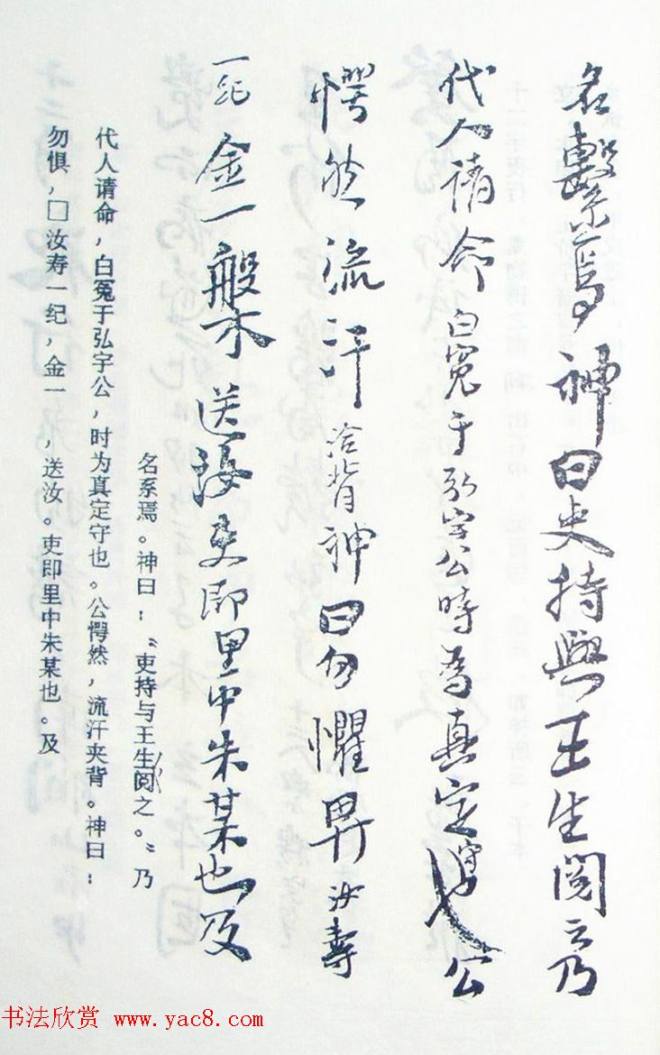 名繫焉神曰吏持與王生閱之乃
代人請命白冤于弘宇公時為真定守也公
愕然流汗浹背神曰勿懼畀汝壽
一紀金一槃送汝吏即里中朱某也及
名系焉。神曰：“吏持与王生阅之。”乃
代人请命，白冤于弘宇公，时为真定守也。公愕然，流汗夹背。神曰：
勿惧，□汝寿一纪，金一，送汝。吏即里中朱某也。及
书法欣赏 www.yac8.com